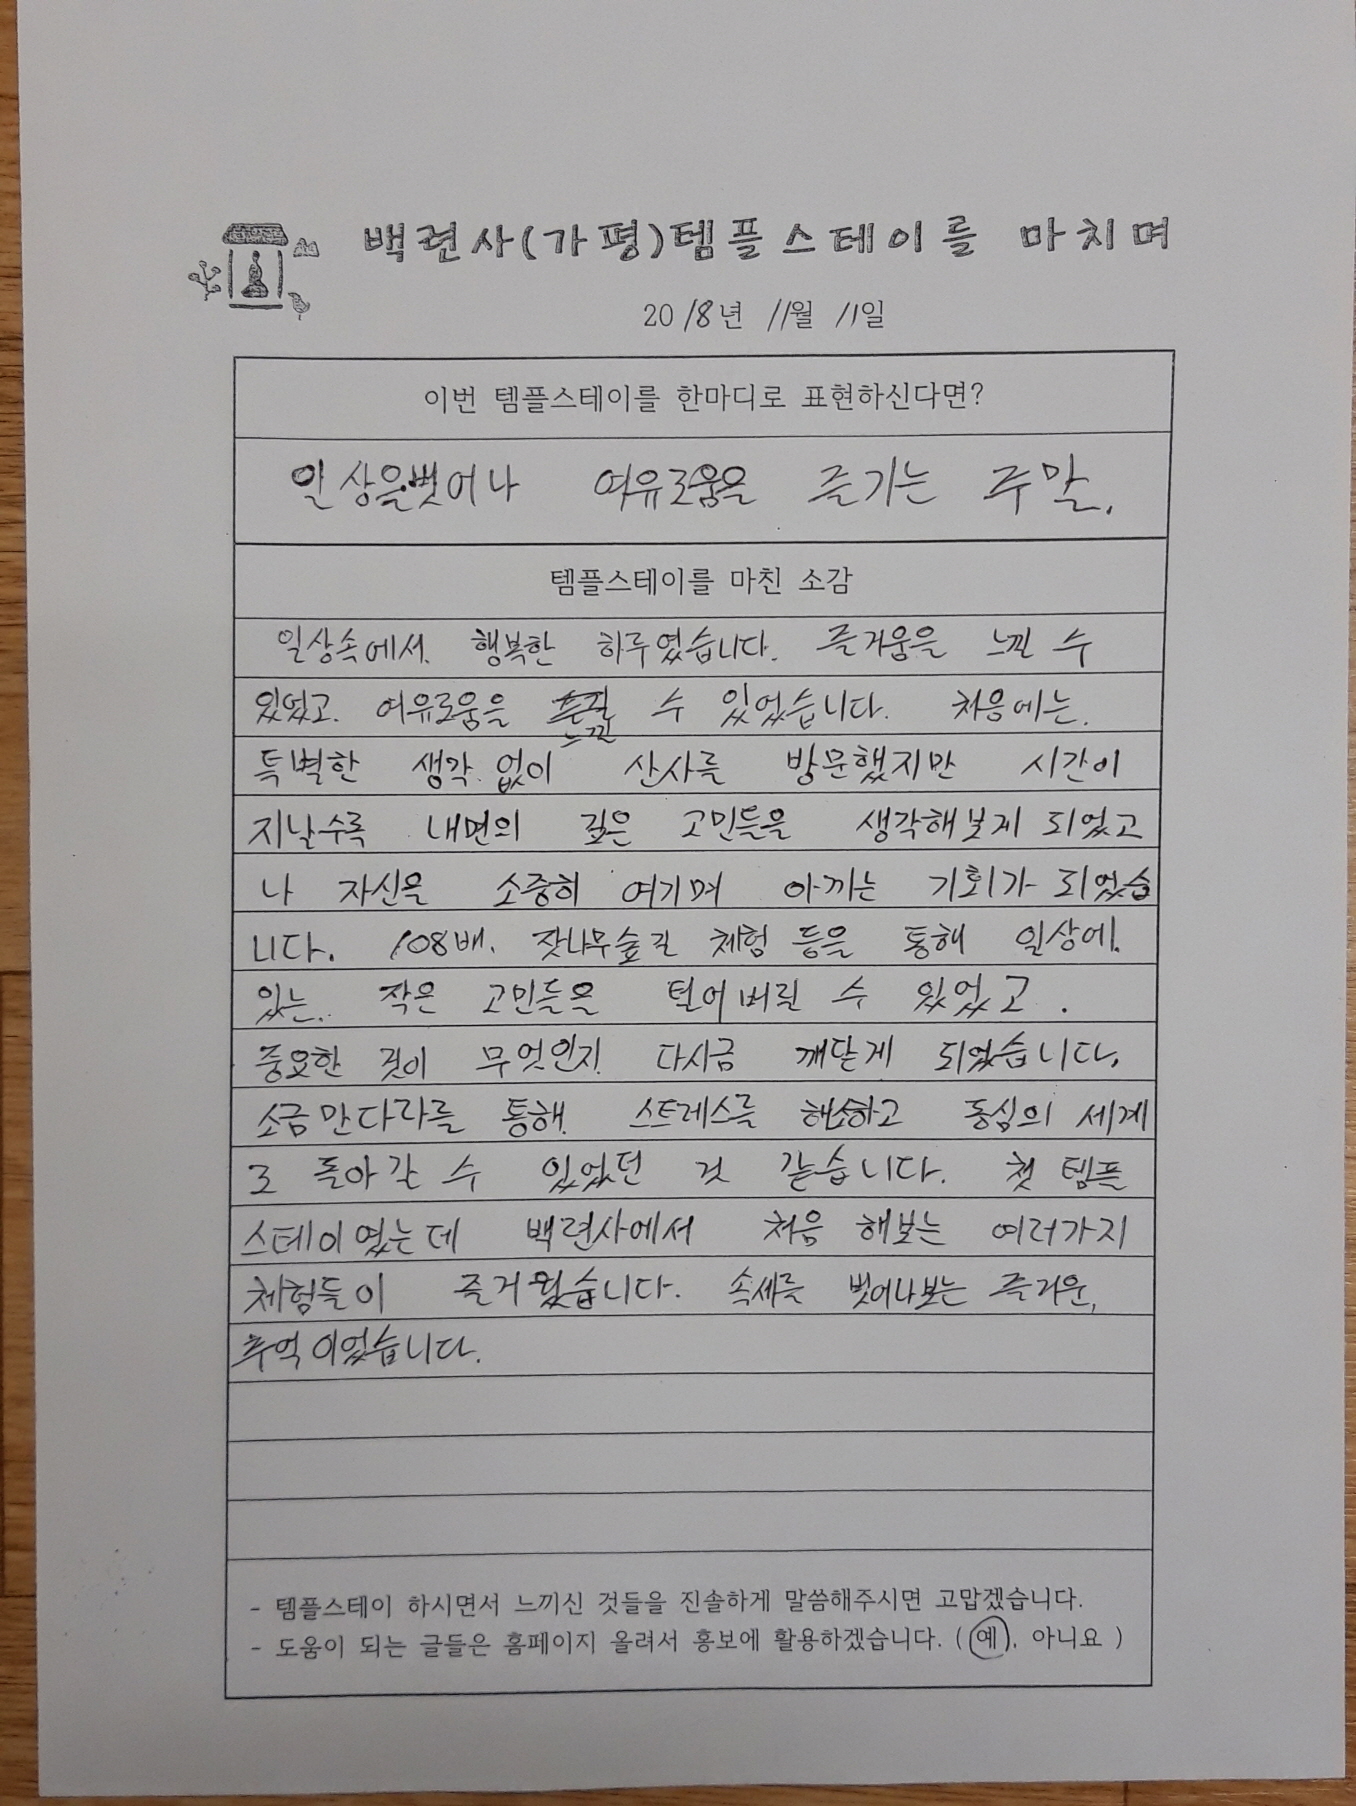 백련사(가평)템플스테이를 마치며
2018년 11월 11일
이번 템플스테이를 한마디로 표현하신다면?
일상을벗어나 여유로움을 즐기는 주말.
템플스테이를 마친 소감
일상속에서. 행복한 하루였습니다. 즐거움을 느낀 수
있었고. 여유로움을 느낀 수 있었습니다. 처음에는.
특별한 생각 없이 산사를 방문했지만 시간이
지날수록 내면의 깊은 고민들을 생각해보게 되었고
나 자신을 소중히 여기며 아끼는 기회가 되었습
니다. 108배. 잣나무숲길 체험 등을 통해 일상에.
있는. 작은 고민들을 털어버릴 수 있었고.
중요한 것이 무엇인지 다시금 깨닫게 되었습니다.
소금만다라를 통해 스트레스를 해소하고 동심의 세계
로 돌아갈 수 있었던 것 같습니다. 첫 템플
스테이였는데 백련사에서 처음 해보는 여러가지
체험들이 즐거웠습니다. 속세를 벗어나보는 즐거운,
추억이었습니다.
- 템플스테이 하시면서 느끼신 것들을 진솔하게 말씀해주시면 고맙겠습니다.
- 도움이 되는 글들은 홈페이지 올려서 홍보에 활용하겠습니다. ( 예, 아니요 )